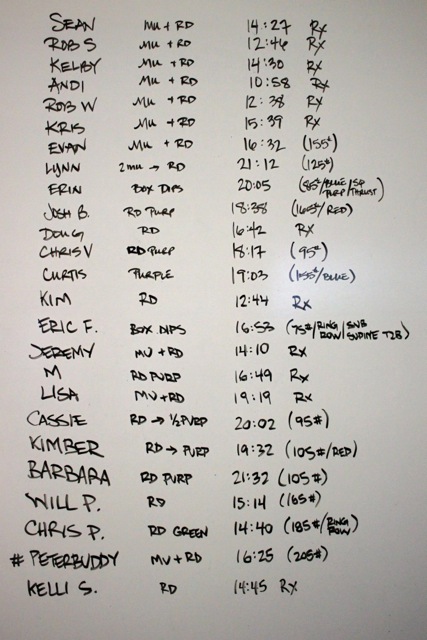 SEAN MU + RD 14:27 Rx
ROB S MU + RD 12:46 Rx
KELBY MU + RD 14:30 Rx
ANDI MU + RD 10:58 Rx
ROB W MU + RD 12:38 Rx
KRIS MU + RD 15:39 Rx
EVAN MU + RD 16:32 (155#)
LYNN 2MU → RD 21:12 (125#)
ERIN BOX DIPS 20:05 (85#/BLUE/SQ PURP/THRUST)
JOSH B. RD PURP 18:38 (165#/RED)
DOUG RD 16:42 Rx
CHRIS V RD PURP 18:17 (95#)
CURTIS PURPLE 19:03 (155#/BLUE)
KIM RD 12:44 Rx
ERIC F. BOX DIPS 16:53 (75#/RING ROW/SUB SUPINE T2B)
JEREMY MU + RD 14:10 Rx
M RD PURP 16:49 Rx
LISA MU + RD 19:19 Rx
CASSIE RD → 1/2 PURP 20:02 (95#)
KIMBER RD → PURP 19:32 (105#/RED)
BARBARA RD PURP 21:32 (105#)
WILL P. RD 15:14 (165#)
CHRIS P. RD GREEN 14:40 (185#/RING ROW)
# PETERBUDDY MU + RD 16:25 (205#)
KELLI S. RD 14:45 Rx